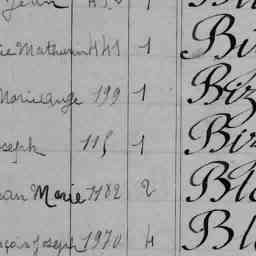 Jean
ie Mathurin 441 1 Bi
Marieange 199 1 Biz
oseph 115 1 Biz
ean Marie 1182 2 Bl
nçois Joseph 1970 4 Bl